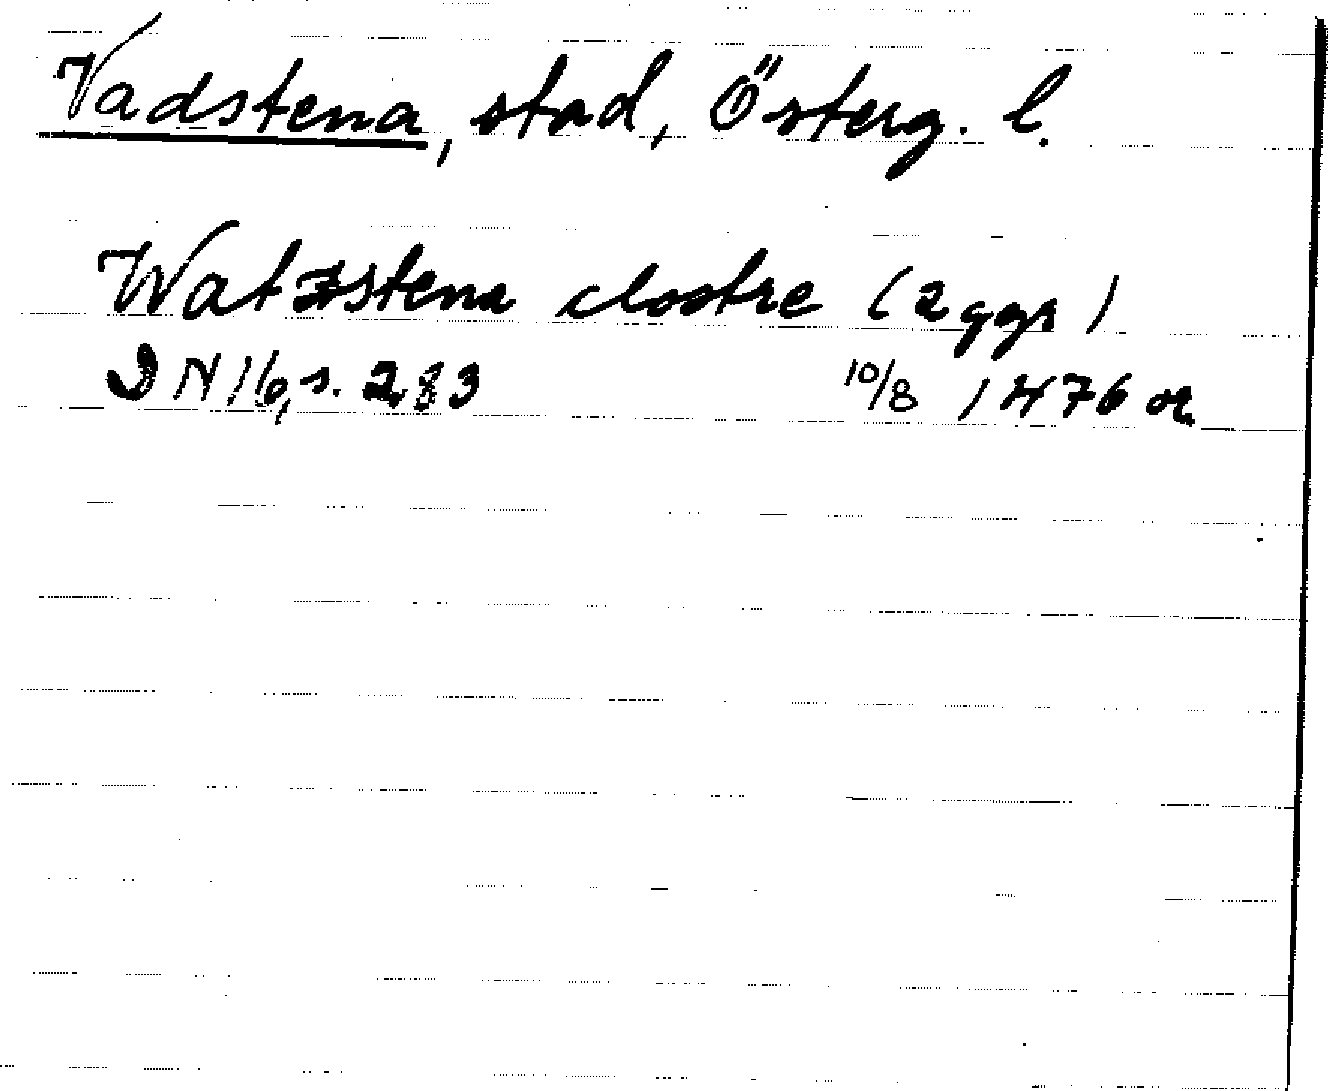 Vadstena, stad, Österg. l.
Watzstena clostre (2 ggr)
DN 16, s. 283 10/8 1476 or.